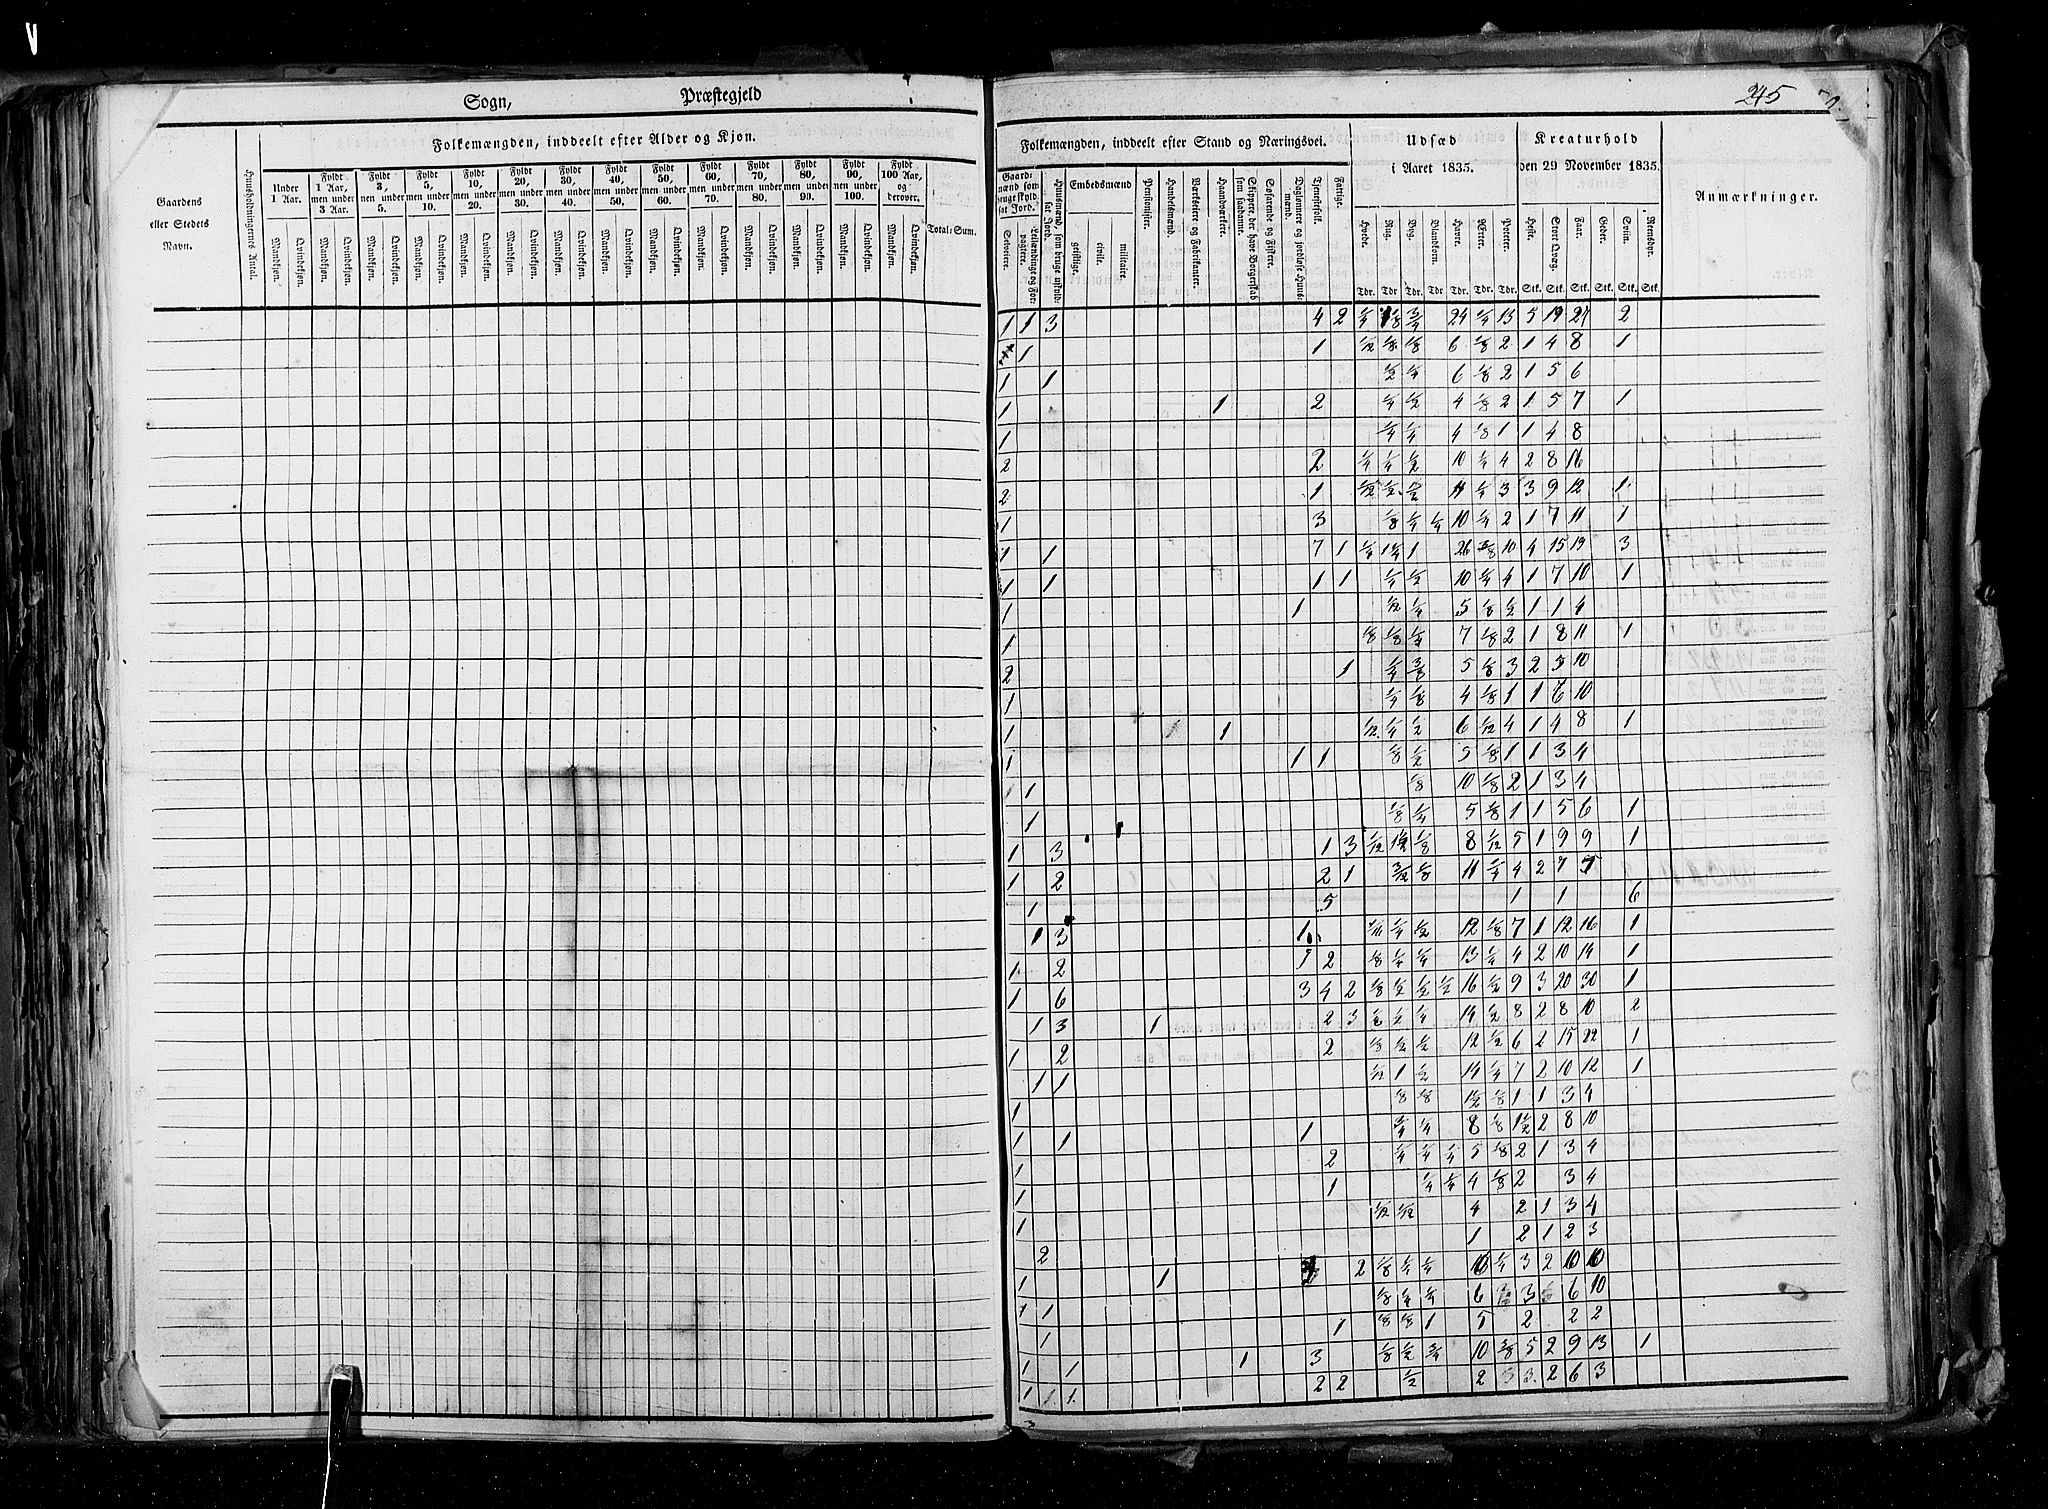 Sogn, Præstegjeld
245
Gaardens eller Stedets Navn.
Huusholdningernes Antal.
Folkemængden, inddeelt efter Alder og Kjøn.
Under 1 Aar.
Fyldt 1 Aar, men under 3 Aar.
Fyldt 3, men under 5.
Fyldt 5, men under 10.
Fyldt 10, men under 20.
Fyldt 20, men under 30.
Fyldt 30, men under 40.
Fyldt 40, men under 50.
Fyldt 50, men under 60.
Fyldt 60, men under 70.
Fyldt 70, men under 80.
Fyldt 80, men under 90.
Fyldt 90, men under 100.
Fyldt 100 Aar, og derover.
Total-Sum.
Mandkjøn. Qvindekjøn. Mandkjøn. Qvindekjøn. Mandkjøn. Qvindekjøn. Mandkjøn. Qvindekjøn. Mandkjøn. Qvindekjøn. Mandkjøn. Qvindekjøn. Mandkjøn. Qvindekjøn. Mandkjøn. Qvindekjøn. Mandkjøn. Qvindekjøn. Mandkjøn. Qvindekjøn. Mandkjøn. Qvindekjøn. Mandkjøn. Qvindekjøn. Mandkjøn. Qvindekjøn. Mandkjøn. Qvindekjøn.
Folkemængden, inddeelt efter Stand og Næringsvei.
Gaardmænd som bruge skyldsat Jord.
Selveiere.
Leilændinge og Forpagtere.
Huusmænd, som bruge uskyldsat Jord.
Embedsmænd
geistlige.
civile.
militaire.
Pensionister.
Handelsmænd.
Værkseiere og Fabrikanter.
Haandværkere.
Skippere, der have Borgerskab som saadanne.
Søfarende og Fiskere.
Daglønnere og jordløse Huusmænd.
Tjenestefolk.
Fattige.
Udsæd i Aaret 1835.
Hvede. Rug. Byg. Blandkorn. Havre. Erter. Poteter.
Tdr. Tdr Tdr. Tdr Tdr. Tdr. Tdr.
Kreaturhold den 29 November 1835.
Heste. Stort Qvæg. Faar. Geder. Sviin. Rensdyr.
Stk. Stk. Stk. Stk. Stk. Stk.
Anmærkninger.
1 1 3 4 2 1/4 1 1/8 3/4 24 1/4 13 5 19 27 2
1 1 1/12 1/8 1/8 6 1/8 2 1 4 8 1
1 1 1/2 1/4 6 1/8 2 1 5 6
1 1 2 1/4 1/2 4 1/8 2 1 5 7 1
1 1/4 1/4 4 1/8 1 1 4 8
2 2 1/4 1/4 1/2 10 1/4 4 2 8 16
2 1 1/12 1/2 1/2 11 1/4 3 3 9 12 1
1 3 1/8 1/4 1/4 10 1/4 2 1 7 11 1
1 1 7 1 1/4 1 1/4 1 26 3/8 10 4 15 19 3
1 1 1 1 1/4 1/2 10 1/4 4 1 7 10 1
1 1 1/12 1/4 5 1/8 1/2 1 1 4
1 1/8 1/8 1/4 7 1/8 2 1 8 11 1
2 1 1/4 3/8 5 1/8 3 2 5 10
1 1/4 1/8 4 1/8 1 1 6 10
1 1 1/12 1/4 1/2 6 1/12 4 1 4 8 1
1 1 1 1/8 1/2 5 1/8 1 1 3 4
1 1/8 10 1/8 2 1 3 4
1 1/8 1/4 5 1/8 1 1 5 6 1
1 3 1 3 1/12 1 1/2 1/8 8 1/12 5 1 9 9 1
1 2 2 1 3/12 1/8 11 1/4 4 2 7 7
1 5 1 1 6
1 3 1 1/16 1/4 1/2 12 1/8 7 1 12 16 1
1 2 1 2 1/8 1/4 1/4 13 1/4 4 2 10 14 1
1 6 3 4 2 1/8 1/2 1/2 1/2 16 1/2 9 3 20 30 1
1 3 1 2 3 1/8 1/2 1/4 14 1/2 8 2 8 10 2
1 2 2 1/8 1/2 1/2 12 1/2 6 2 15 22 1
1 1 1/12 1 1/2 14 1/4 7 2 10 12 1
1 1/8 1/8 1 1/2 1/8 1 1 3 4
1 1 1 3/4 1/4 8 1/8 1 1/2 2 8 10
1 2 1/4 1/4 1/4 5 1/8 2 1 3 4
1 1 1/4 1/4 4 1/8 2 3 4
1 1/12 1/12 4 2 1 3 4
2 1 2 1 2 3
1 1 2 1/8 1/4 1/4 10 1/4 3 2 10 10
1 1 1/8 1/4 1/4 6 3 6 10
1 1 1/8 1/8 1 5 2 2 2
1 1 1 3 1/8 1/2 3/4 10 3/8 5 2 9 13 1
1 1 1 2 2 1/2 2 3 2 6 3